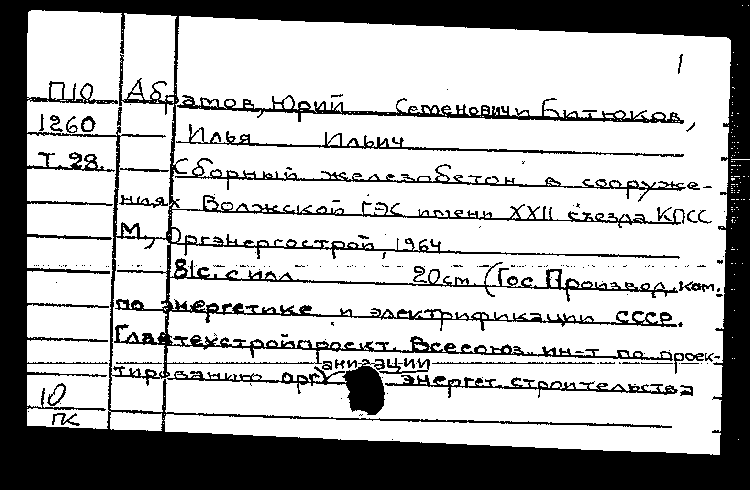 1
П10 Абрамов, Юрий Семенович и Битюков,
1260 Илья Ильич
Т. 28. Сборный железобетон в сооруже-
ниях Волжской ГЭС имени XXII съезда КПСС
М., Оргэнергострой, 1964
81с. с илл 20см. (Гос. Производ. ком.
по энергетике и электрификации СССР.
Главтехстройпроект. Всесоюз. ин-т по проек-
анизации
тированию орг энергет. строительства
10
ПК